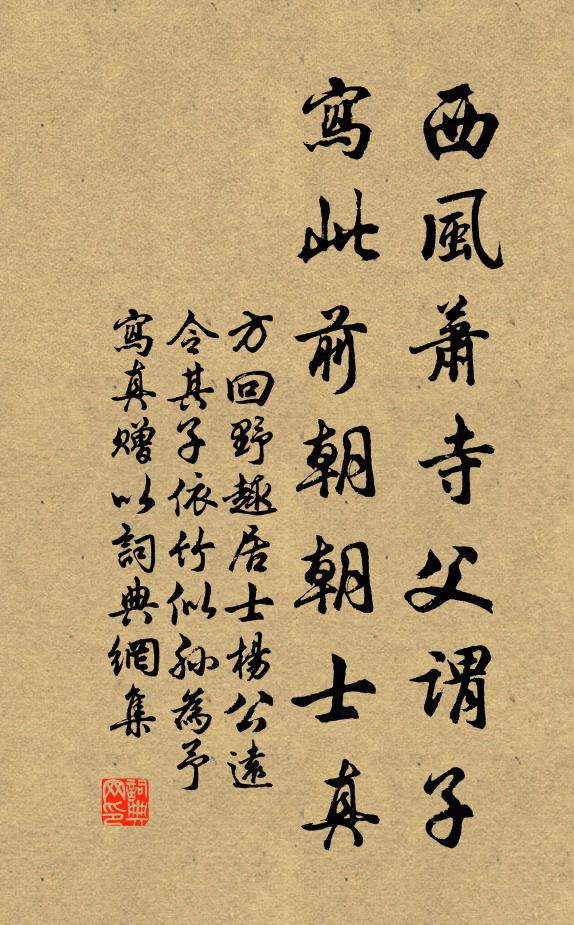 西風蕭寺父謂子
寫此前朝朝士真
方回野趣居士楊公遠
令其子依竹似孫為予
寫真贈以詞典網集
詞典网印